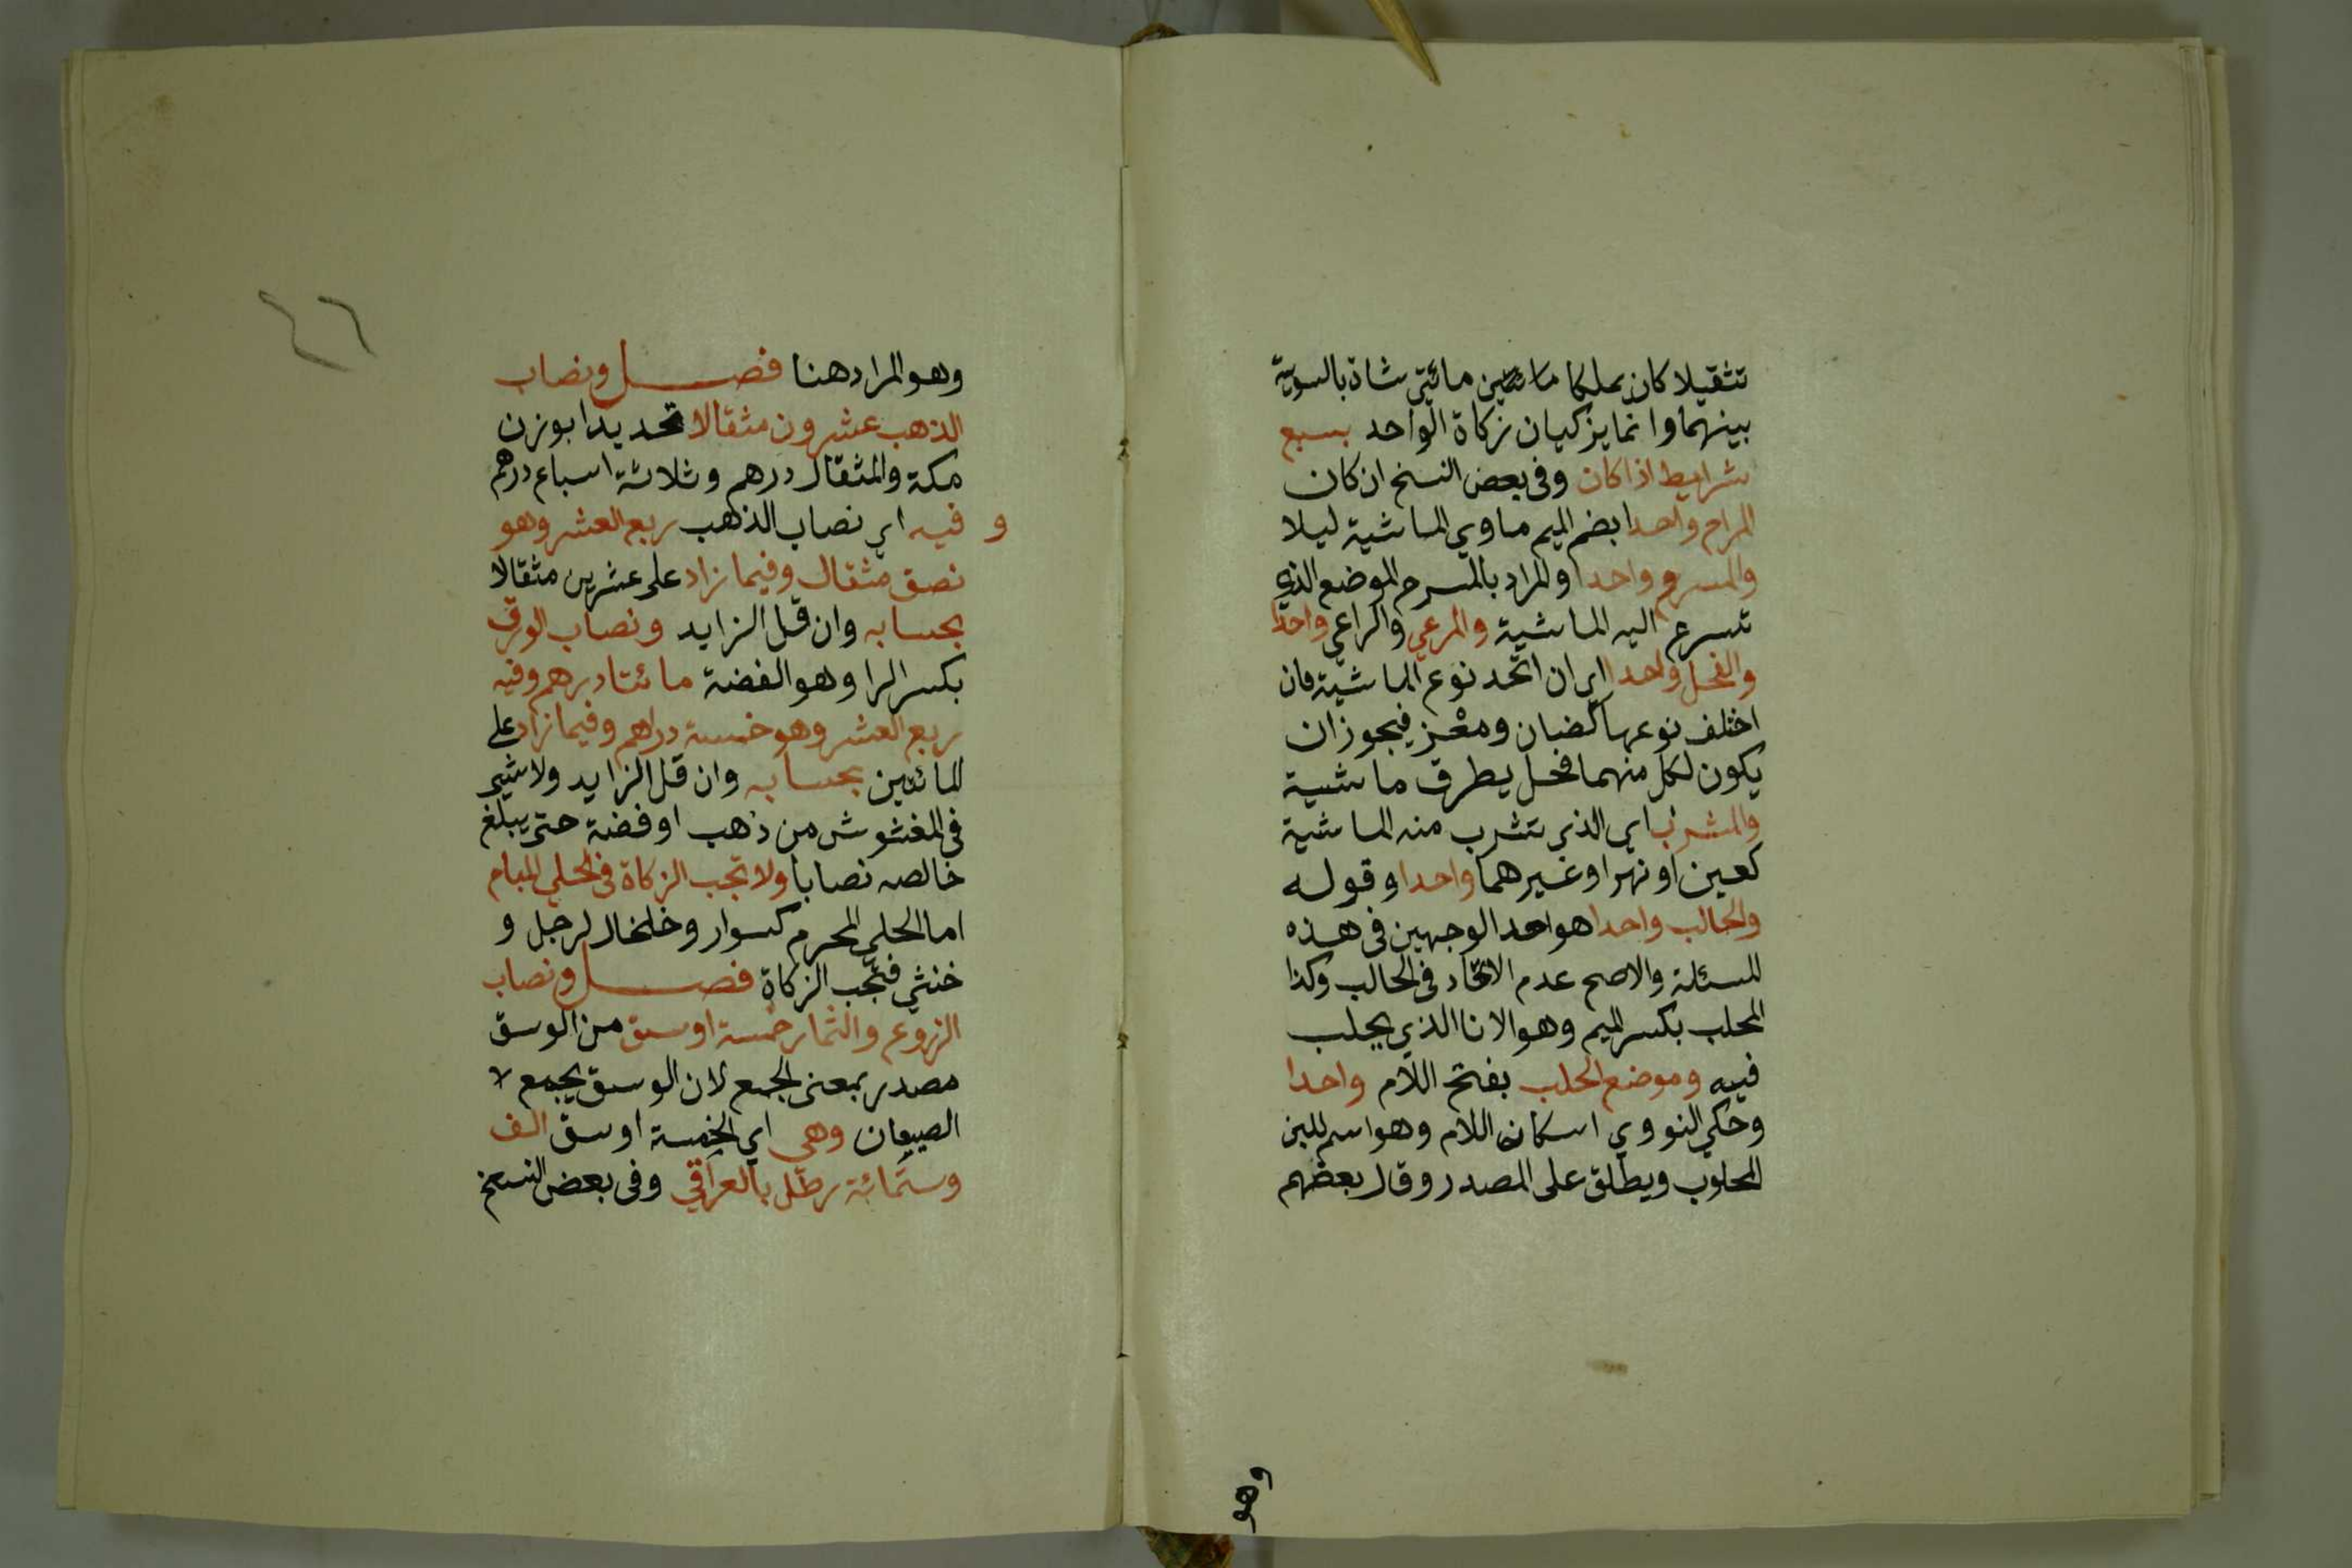 تثقيلا كان يملكا مائتين مائتي شاة بالسوية
بينهما وانما يزكيان زكاة الواحد بسبع
شرايط اذا كان وفى بعض النسخ ان كان
المراح واحدا بضم الميم ماوي الماشية ليلا
والمسرح واحدا والمراد بالمسرح الموضع الذي
تسرح اليه الماشية والمرعي والراعي واحدا
والفحل واحدا اي ان اتحد نوع الماشية فان
اختلف نوعها كضان ومعز فيجوز ان
يكون لكل منهما فحل يطرق ماشية
والمشرب اي الذي تشرب منه الماشية
كعين او نهر او غيرهما واحدا وقوله
والحالب واحدا هو احد الوجهين فى هذه
المسئلة والاصح عدم الاتحاد فى الحالب وكذا
المحلب بكسر الميم وهو الانا الذي يحلب
فيه وموضع الحلب بفتح اللام واحدا
وحكي النووي اسكان اللام وهو اسم للبن
المحلوب ويطلق على المصدر وقال بعضهم
وهو
٤٦
وهو المراد هنا فصل ونصاب
الذهب عشرون مثقالا تحديدا بوزن
مكة والمثقال درهم وثلاثة اسباع درهم
و فيه اي نصاب الذهب ربع العشر وهو
نصق مثقال وفيما زاد على عشرين مثقالا
بحسابه وان قل الزايد ونصاب الورق
بكسر الرا وهو الفضة مائتا درهم وفيه
ربع العشر وهو خمسة دراهم وفيما زاد على
المائتين بحسابه وان قل الزايد ولا شيى
فى المغشوش من ذهب او فضة حتى يبلغ
خالصه نصابا ولا تجب الزكاة فى الحلي المباح
اما الحلى المحرم كسوار وخلخال لرجل و
خنثي فتجب الزكاة فصل ونصاب
الزروع والثمار خمسة اوسق من الوسق
مصدر بمعنى الجمع لان الوسق يجمع لا
الصيعان وهى اي الخمسة اوسق الف
وستمائة رطل بالعراقي وفى بعض النسخ